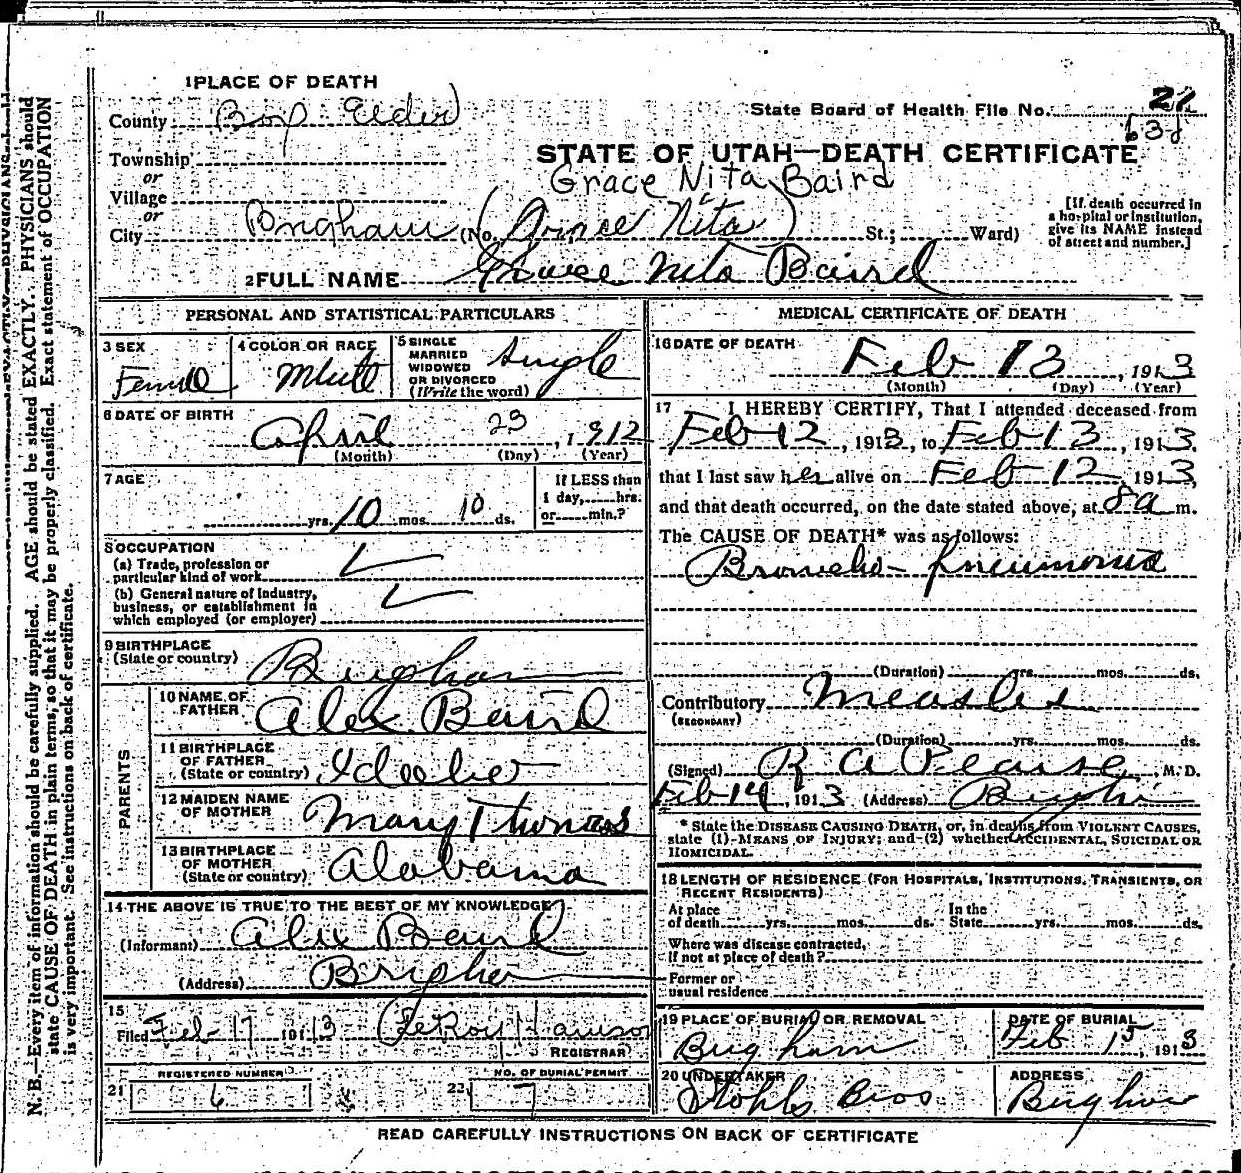 1 PLACE OF DEATH
County Box Elder
State Board of Health File No. 21
Township
or
Village
or
City Brigham (No. Grace Nita) St.; Ward)
STATE OF UTAH—DEATH CERTIFICATE
Grace Nita Baird
[If death occurred in
a hospital or institution,
give its NAME instead
of street and number.]
2 FULL NAME Grace Nita Baird
PERSONAL AND STATISTICAL PARTICULARS
3 SEX
Female
4 COLOR OR RACE
White
5 SINGLE
MARRIED
WIDOWED
OR DIVORCED
(Write the word)
Single
6 DATE OF BIRTH
April 23, 1912
(Month) (Day) (Year)
7 AGE
yrs. 10 mos. 10 ds.
If LESS than
1 day, hrs.
or min.?
8 OCCUPATION
(a) Trade, profession or
particular kind of work
(b) General nature of industry,
business, or establishment in
which employed (or employer)
9 BIRTHPLACE
(State or country) Brigham
PARENTS
10 NAME OF
FATHER Alex Baird
11 BIRTHPLACE
OF FATHER
(State or country) Idaho
12 MAIDEN NAME
OF MOTHER Mary Thomas
13 BIRTHPLACE
OF MOTHER
(State or country) Alabama
14 THE ABOVE IS TRUE TO THE BEST OF MY KNOWLEDGE
(Informant) Alex Baird
(Address) Brigham
15
Filed Feb-17 1913 LeRoy Harrison
REGISTRAR
21 REGISTERED NUMBER
6
22 NO. OF BURIAL PERMIT
7
MEDICAL CERTIFICATE OF DEATH
16 DATE OF DEATH
Feb 13, 1913
(Month) (Day) (Year)
17 I HEREBY CERTIFY, That I attended deceased from
Feb-12, 1913, to Feb-13, 1913,
that I last saw her alive on Feb-12, 1913,
and that death occurred, on the date stated above, at 8a m.
The CAUSE OF DEATH* was as follows:
Broncho-pneumonia
(Duration) yrs. mos. ds.
Contributory Measles
(SECONDARY)
(Duration) yrs. mos. ds.
(Signed) R A Pearse, M. D.
Feb-14, 1913 (Address) Brigham
* State the DISEASE CAUSING DEATH, or, in deaths from VIOLENT CAUSES,
state (1) MEANS OF INJURY; and (2) whether ACCIDENTAL, SUICIDAL OR
HOMICIDAL.
18 LENGTH OF RESIDENCE (FOR HOSPITALS, INSTITUTIONS, TRANSIENTS, OR
RECENT RESIDENTS)
At place
of death yrs. mos. ds. In the
State yrs. mos. ds.
Where was disease contracted,
if not at place of death?
Former or
usual residence
19 PLACE OF BURIAL OR REMOVAL
Brigham
DATE OF BURIAL
Feb 15, 1913
20 UNDERTAKER
Stohls Bros
ADDRESS
Brigham
READ CAREFULLY INSTRUCTIONS ON BACK OF CERTIFICATE
N. B.—Every item of information should be carefully supplied. AGE should be stated EXACTLY. PHYSICIANS should
state CAUSE OF DEATH in plain terms, so that it may be properly classified. Exact statement of OCCUPATION
is very important. See instructions on back of certificate.